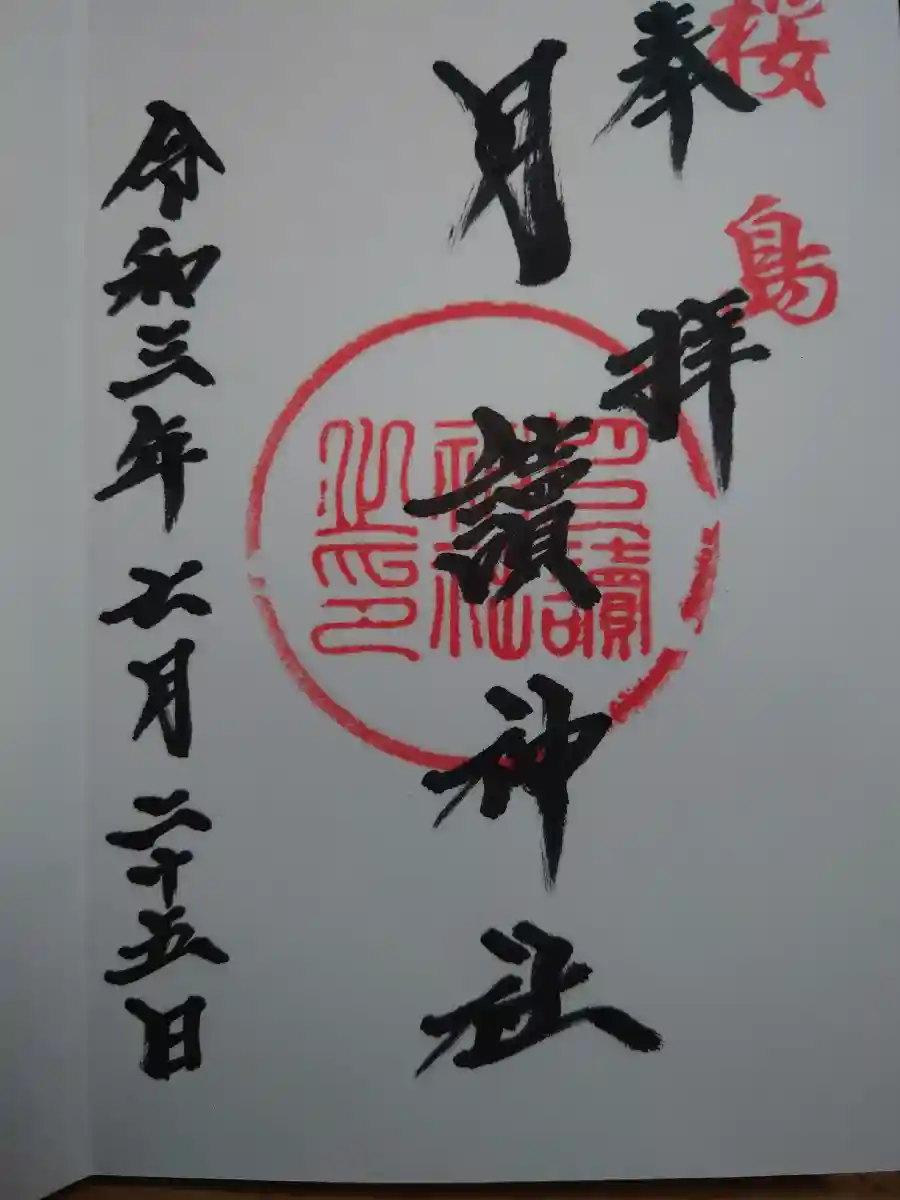 桜島
奉拝
月讀神社
月讀神社之印
令和三年七月二十五日